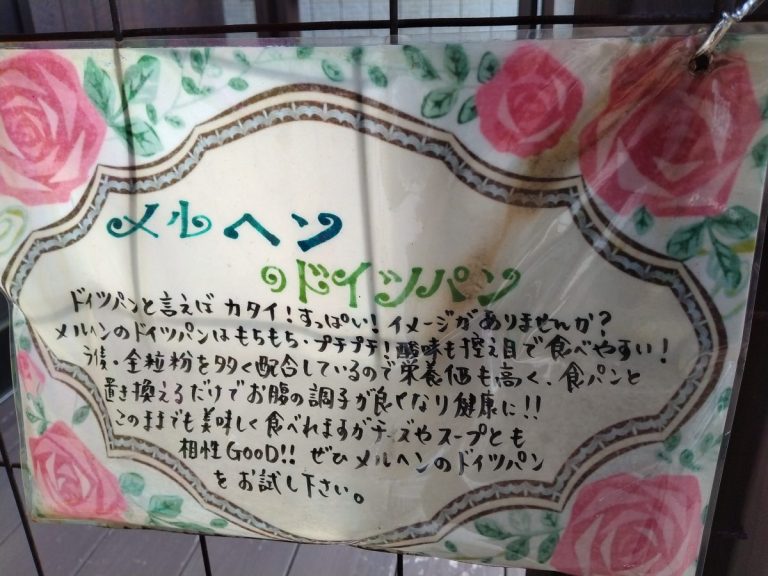 メルヘン
のドイツパン
ドイツパンと言えば カタイ！すっぱい！イメージがありませんか？
メルヘンのドイツパンはもちもち・プチプチ！酸味も控え目で食べやすい！
ライ麦・全粒粉を多く配合しているので栄養価も高く、食パンと
置き換えるだけでお腹の調子が良くなり健康に！！
このままでも美味しく食べれますがチーズやスープとも
相性GOOD!! ぜひメルヘンのドイツパン
をお試し下さい。